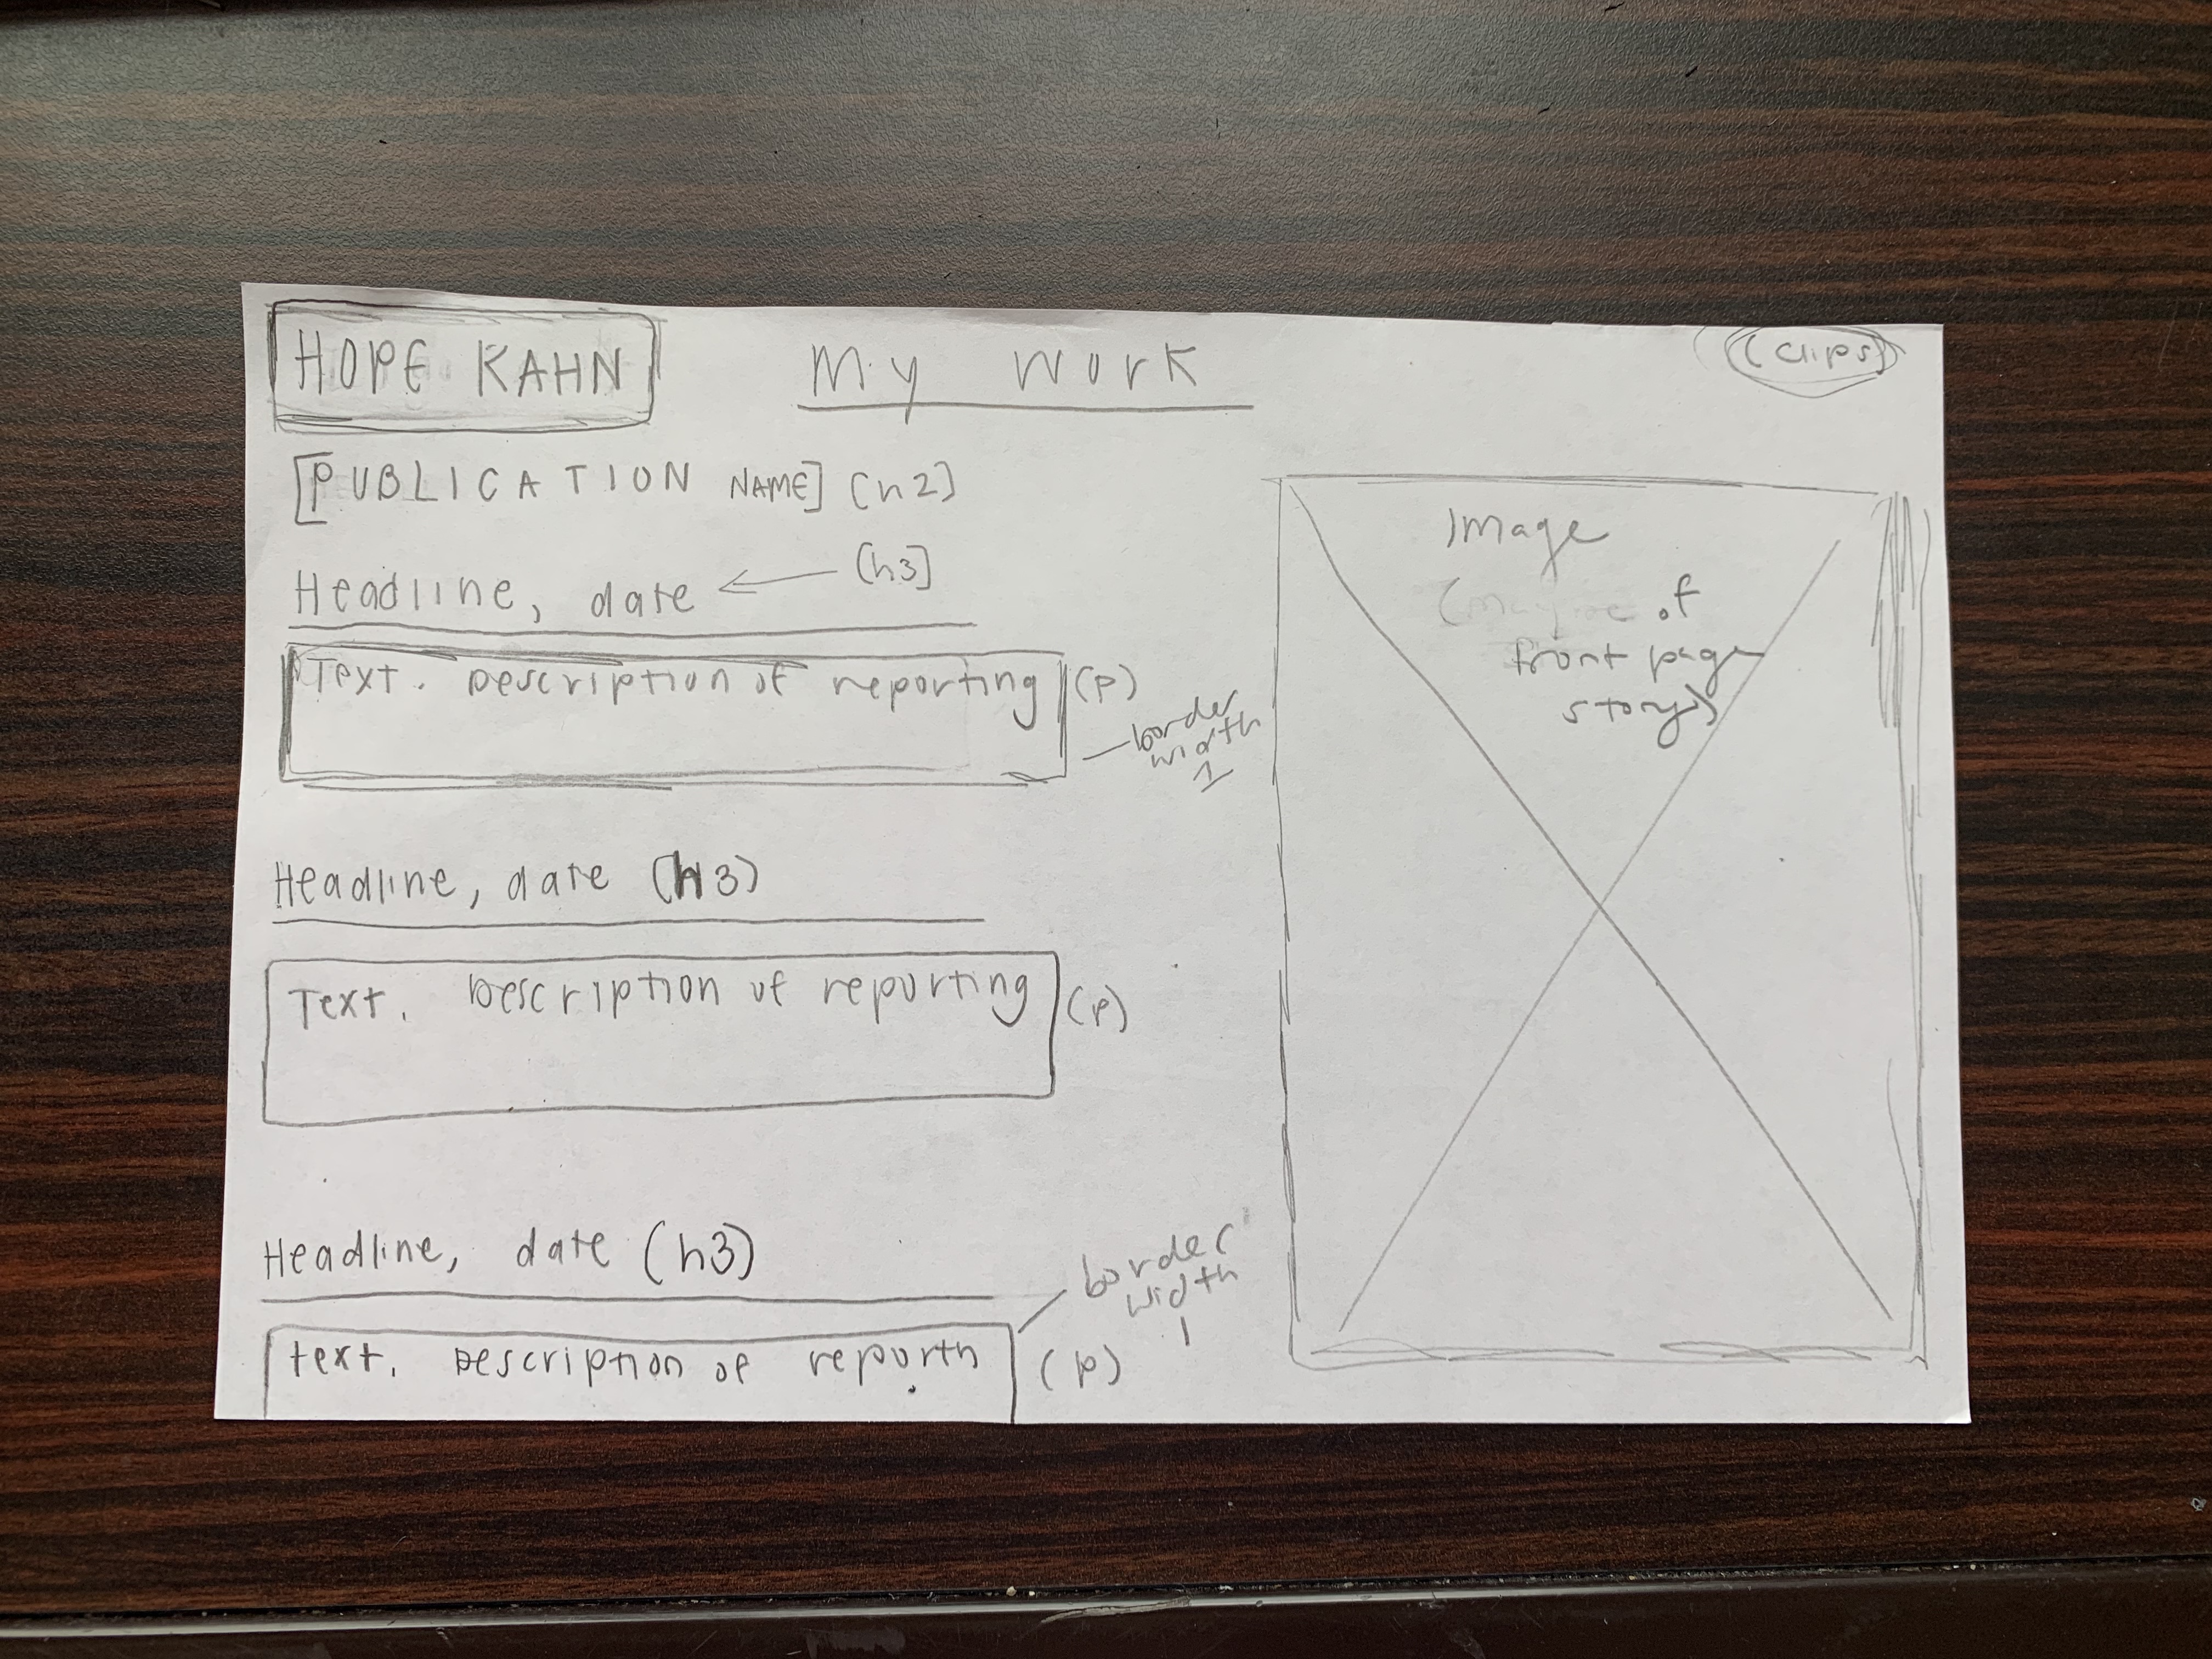 HOPE KAHN
My Work
(Clips)
[PUBLICATION NAME] (h2)
Headline, date ← (h3)
Text. Description of reporting (p)
border width 1
Headline, date (h3)
Text. Description of reporting (p)
Headline, date (h3)
text. Description of reportin (p)
border width 1
Image
of
front page
story)